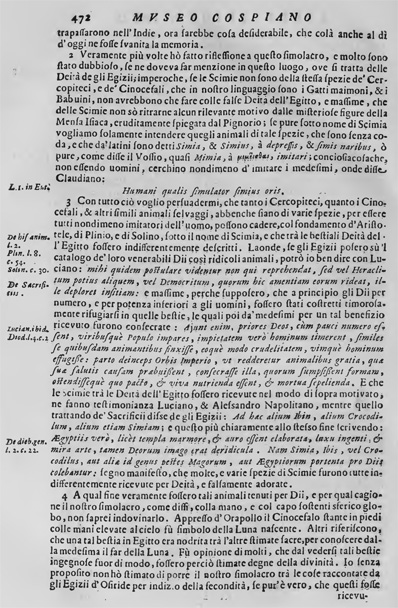 472 MVSEO COSPIANO
trapassarono nell'Indie, ora sarebbe cosa desiderabile, che colà anche al dì
d'oggi ne fosse svanita la memoria.
2 Veramente più volte hò fatto riflessione a questo simolacro, e molto sono
stato dubbioso, se ne doveva far menzione in questo luogo, ove si tratta delle
Deità degli Egizii; imperoche, se le Scimie non sono della stessa spezie de' Cer-
copiteci, e de' Cinocefali, che in nostro linguaggio sono i Gatti maimoni, & i
Babuini, non avrebbono che fare colle false Deità dell'Egitto, e massime, che
delle Scimie non sò ritrarne alcun rilevante motivo dalle misteriose figure della
Mensa Isiaca, eruditamente spiegata dal Pignorio; se pure sotto nome di Scimia
vogliamo solamente intendere quegli animali di tale spezie, che sono senza co-
da, e che da' latini sono detti Simia, & Simius, à depressis, & simis naribus, ò
pure, come disse il Vossio, quasi Mimia, à imitari; conciosiacosache,
non essendo uomini, cerchino nondimeno d'imitare i medesimi, onde disse
Claudiano:
L.1. in Eut. Humani qualis simulator simius oris.
3 Con tutto ciò voglio persuadermi, che tanto i Cercopiteci, quanto i Cino-
cefali, & altri simili animali selvaggi, abbenche siano di varie spezie, per essere
tutti nondimeno imitatori dell'uomo, possono cadere, col fondamento d'Aristo-
De hist. anim. tele, di Plino, e di Solino, sotto il nome di Scimia, e che trà le bestiali Deità del-
l. 2. l'Egitto fossero indifferentemente descritti. Laonde, se gli Egizii posero sù'l
Plin. l. 8. catalogo de' loro venerabili Dii così ridicoli animali, potrò io ben dire con Lu-
c. 54.
Solin. c. 30. ciano: mihi quidem postulare videntur non qui reprehendat, sed vel Heracli-
tum potius aliquem, vel Democritum, quorum hic amentiam eorum rideat, il-
De Sacrifi- le deplores insitiam: e massime, perche suppofero, che a principio gli Dii per
numero, e per potenza inferiori a gli uomini, fossero stati costretti timorosa-
mente rifugiarsi in quelle bestie, le quali poi da' medesimi per un tal benefizio
Lucian. ibid. ricevuto furono consecrate: Ajunt enim, priores Deos, cùm pauci numero es-
Diod. l.4. c.2. sent, viribusque Populo impares, impietatem verò hominum timerent, similes
se quibusdam animantibus finxisse, eoque modo crudelitatem, vimque hominum
effugisse: parto deinceps Orbis Imperio, ut redderetur animalibus gratia, quæ
suæ salutis causam præbuissent, consecrasse illa, quorum sumpsissent formam,
ostendisseque quo pacto, & viva nutrienda essent, & mortua sepelienda. E che
le scimie trà le Deità dell'Egitto fossero ricevute nel modo di sopra motivato,
ne fanno testimonianza Luciano, & Alessandro Napolitano, mentre quello
trattando de' Sacrifizi disse de gli Egizii: Ad hæc alium Ibin, alium Crocodi-
lum, alium etiam Simiam; e questo più chiaramente allo stesso fine scrivendo:
De dieb. gen. Ægyptiis verò, licèt templa marmore, & auro essent elaborata, luxu ingenti, &
l. 2. c. 22. mira arte, tamen Deorum imago erat deridicula. Nam Simia, Ibis, vel Cro-
codilus, aut alia id genus pestes Magorum, aut Ægyptiorum portenta pro Diis
colebantur: segno manifesto, che molte, e varie spezie di Scimie furono tutte in-
differentemente ricevute per Deità, e falsamente adorate.
4 A qual fine veramente fossero tali animali tenuti per Dii, e per qual cagio-
ne il nostro simolacro, come dissi, colla mano, e col capo sostenti sferico glo-
bo, non saprei indovinarlo. Appresso d'Orapollo il Cinocefalo stante in piedi
colle mani elevate al cielo fù simbolo della Luna nascente. Altri riferiscono,
che una tal bestia in Egitto era nodrita trà l'altre stimate sacre, per conoscere dal-
la medesima il far della Luna. Fù opinione di molti, che dal vedersi tali bestie
ingegnose fuor di modo, fossero perciò stimate degne della divinità. Io senza
proposito non hò stimato di porre il nostro simolacro trà le cose raccontate da
gli Egizii d'Osiride per indizo della fecondità, se pur'è vero, che questi fosse
ricevu-